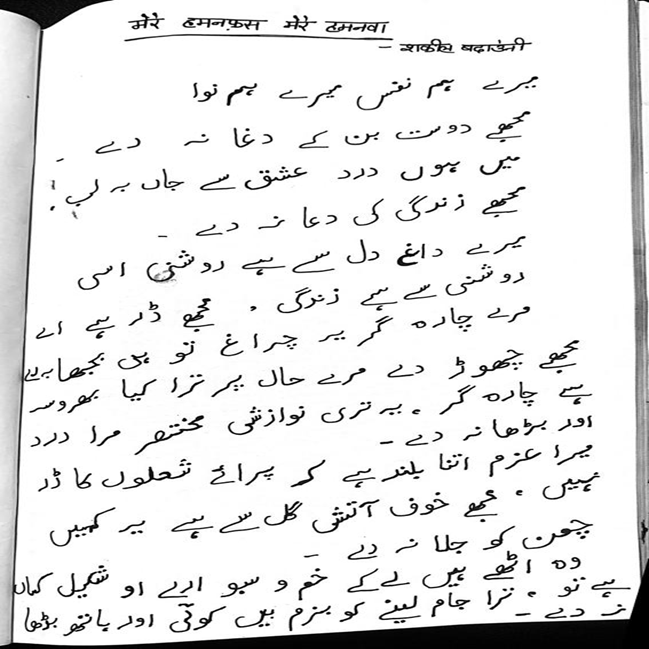 मेरे हमनफ़स मेरे हमनवा
- शकील बदाउनी
میرے ہم نفس میرے ہم نوا
مجھے دوست بن کے دغا نہ دے -
میں ہوں درد عشق سے جاں بہ لب!
مجھے زندگی کی دعا نہ دے -
میرے داغ دل سے ہے روشنی اسی
روشنی سے ہے زندگی، مجھے ڈر ہے اے
مرے چارہ گر یہ چراغ تو ہی بجھا
مجھے چھوڑ دے مرے حال پر ترا کیا بھروسہ
ہے چارہ گر، یہ تری نوازش مختصر مرا درد
اور بڑھا نہ دے -
میرا عزم اتنا بلند ہے کہ پرائے شعلوں کا ڈر
نہیں، مجھے خوف آتش گل سے ہے یہ کہیں
چمن کو جلا نہ دے -
وہ اٹھے ہیں لے کے خم و سبو ارے او شکیل کہاں
ہے تو، ترا جام لینے کو بزم میں کوئی اور ہاتھ بڑھا
نہ دے -